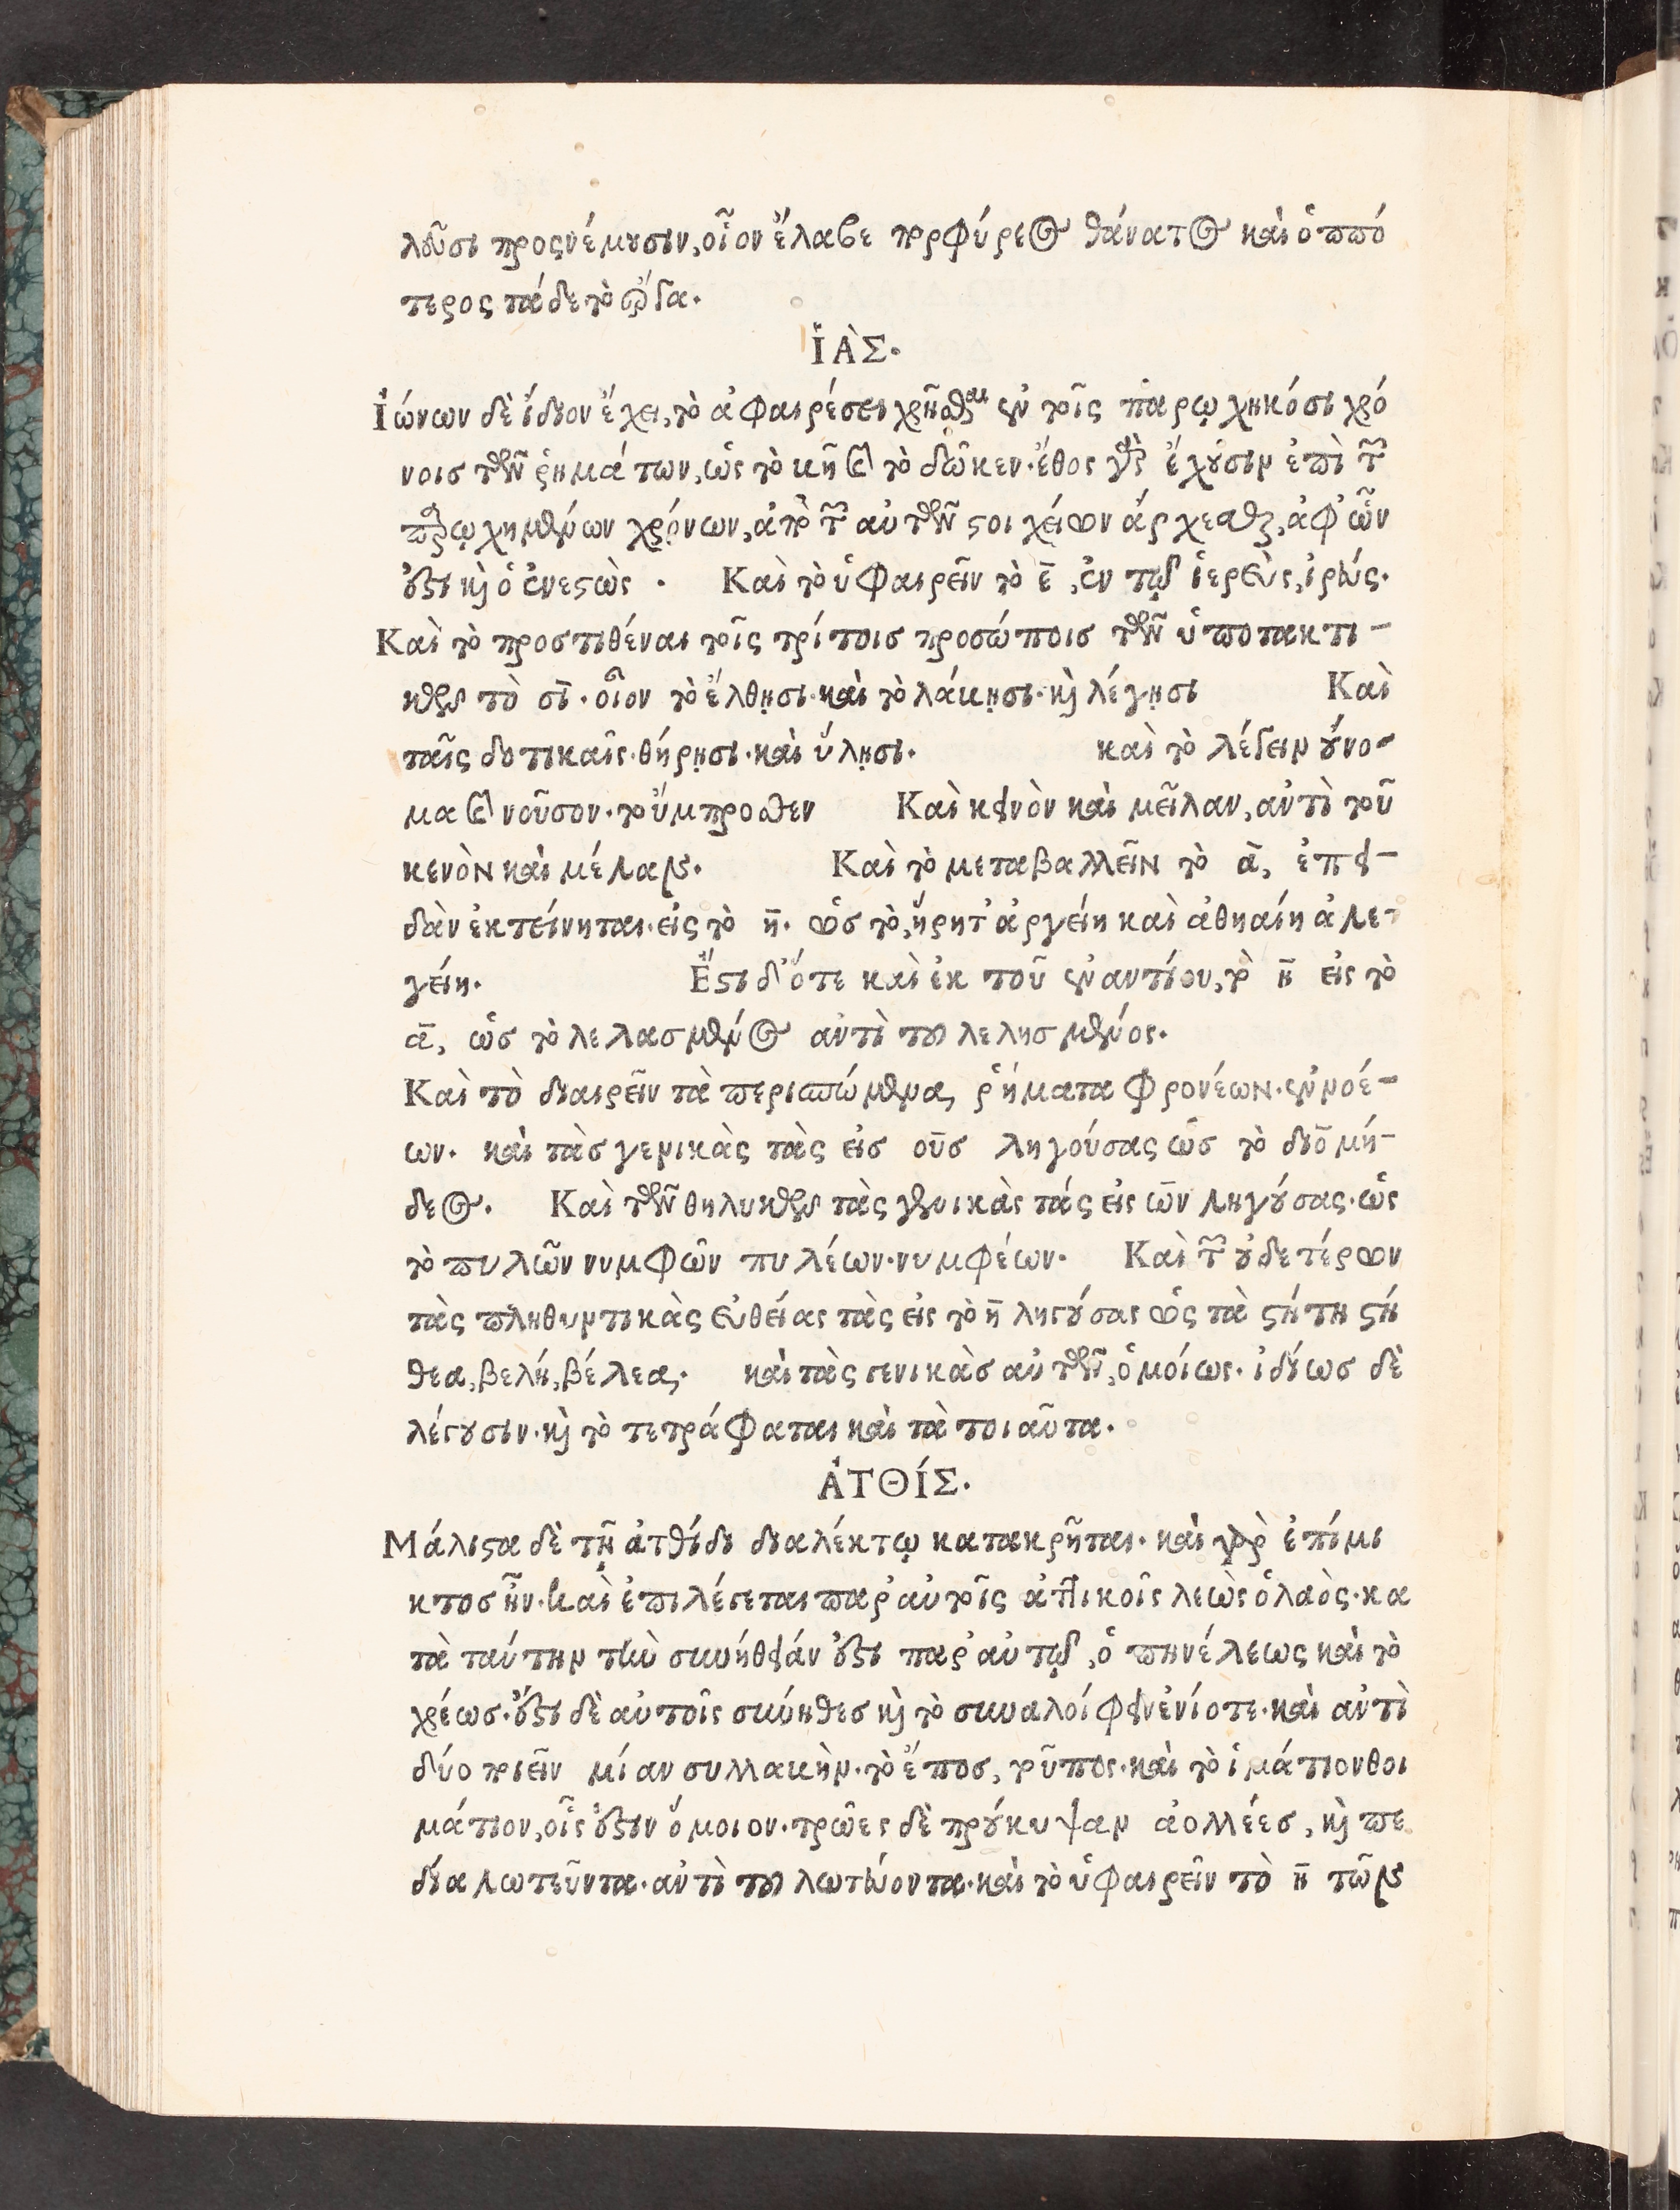 λοῦσι προςνέμουσιν, οἷον ἔλαβε πορφύρεος θάνατος καὶ ὁππό
τερος τάδε τὸ ὦδα.
ἸᾺΣ.
Ἰώνων δὲ ἴδιον ἔχει, τὸ ἀφαιρέσει χρῆσθαι ἐν τοῖς παρῳχηκόσι χρό
νοις τῶν ῥημάτων, ὡς τὸ κῆ καὶ τὸ δῶκεν. ἔθος γὰρ ἔχουσιν ἐπὶ τῶν
παρῳχημένων χρόνων, ἀπὸ τῶν αὐτῶν στοιχείων ἄρχεσθαι, ἀφ' ὧν
ἐστι καὶ ὁ ἐνεστὼς . Καὶ τὸ ὑφαιρεῖν τὸ ε̄, ἐν τῷ ἱερεὺς, ἱρεύς.
Καὶ τὸ προστιθέναι τοῖς τρίτοις προσώποις τῶν ὑποτακτι-
κῶν τὸ σῑ. οἷον τὸ ἔλθῃσι. καὶ τὸ λάκῃσι. καὶ λέγῃσι Καὶ
ταῖς δοτικαῖς. θύρῃσι. καὶ ὕλῃσι. καὶ τὸ λέγειν οὔνο-
μα καὶ νοῦσον. τοὔμπροσθεν Καὶ κεινὸν καὶ μεῖλαν, αὐτὶ τοῦ
κενὸν καὶ μέλαν. Καὶ τὸ μεταβαλλεῖν τὸ ᾱ, ἐπει-
δὰν ἐκτείνηται. εἰς τὸ η̄. ὡς τὸ, ἥρητ' ἀργείη καὶ ἀθηαίη ἀλε-
γείη. Ἔστι δ' ὅτε καὶ ἐκ τοῦ ἐναντίου, τὸ η̄ εἰς τὸ
ᾱ, ὡς τὸ λελασμένος αὐτὶ τοῦ λελησμένος.
Καὶ τὸ διαιρεῖν τὰ περισπώμενα, ῥήματα φρονέων. ἐννοέ-
ων. καὶ τὰς γενικὰς τὰς εἰς οῡς ληγούσας ὡς τὸ διομή-
δεος. Καὶ τῶν θηλυκῶν τὰς γενικὰς τάς εἰς ῶν ληγούσας. ὡς
τὸ πυλῶν νυμφῶν πυλέων. νυμφέων. Καὶ τῶν οὐδετέρων
τὰς πληθυντικὰς εὐθείας τὰς εἰς τὸ η̄ ληγούσας ὡς τὰ στήτη στή
θεα, βελή, βέλεα,. καὶ τὰς γενικὰς αὐτῶν, ὁμοίως. ἰδίως δὲ
λέγουσιν. καὶ τὸ τετράφαται καὶ τὰ τοιαῦτα.
ἈΤΘΊΣ.
Μάλιστα δὲ τῇ ἀτθίδι διαλέκτῳ κατακρῆται. καὶ γὰρ ἐπίμι
κτος ἦν. καὶ ἐπιλέγεται παρ' αὐτοῖς ἀττικοῖς λεὼς ὁ λαὸς. κα
τὰ ταύτην τὴν συνήθειάν ἐστι παρ' αὐτῷ, ὁ πηνέλεως καὶ τὸ
χρέως. ἔστι δὲ αὐτοῖς σύνηθες καὶ τὸ συναλοίφειν ἐνίοτε. καὶ αὐτὶ
δύο ποιεῖν μίαν συλλαβὴν. τὸ ἔπος, τοὖπος. καὶ τὸ ἱμάτιον θοι
μάτιον, οἷς ἐστιν ὅμοιον. τρῶες δὲ προύκυψαν ἀολλέες, καὶ πε
δία λωτεῦντα. αὐτὶ τοῦ λωτεύοντα. καὶ τὸ ὑφαιρεῖν τὸ η̄ τῶν